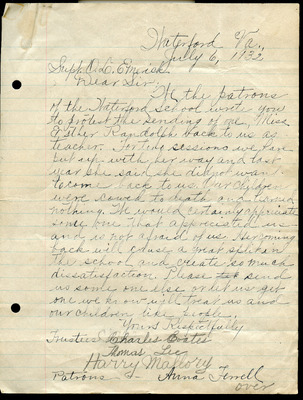 Waterford Va.,
July 6, 1932
Supt. O. L. Emerick
Dear Sir:
We the patrons
of the Waterford School want you
to protest the sending of one, Miss
Esther Randolph back to us as
teacher. For two sessions we have
put up with her way and last
year she said she did not want
to come back to us. Our children
were to death and learned
nothing. We would certainly appreciate
some one that appreciated us
and is not afraid of us. Her coming
back will cause a great stir in
the school and create so much
dissatisfaction. Please send
us some one else or let us get
one we know will treat us and
our children like people.
Yours Respectfully
Trustees Charles Coates
Thomas Lee
Harry Mallory
Patrons Anna Ferrell
over